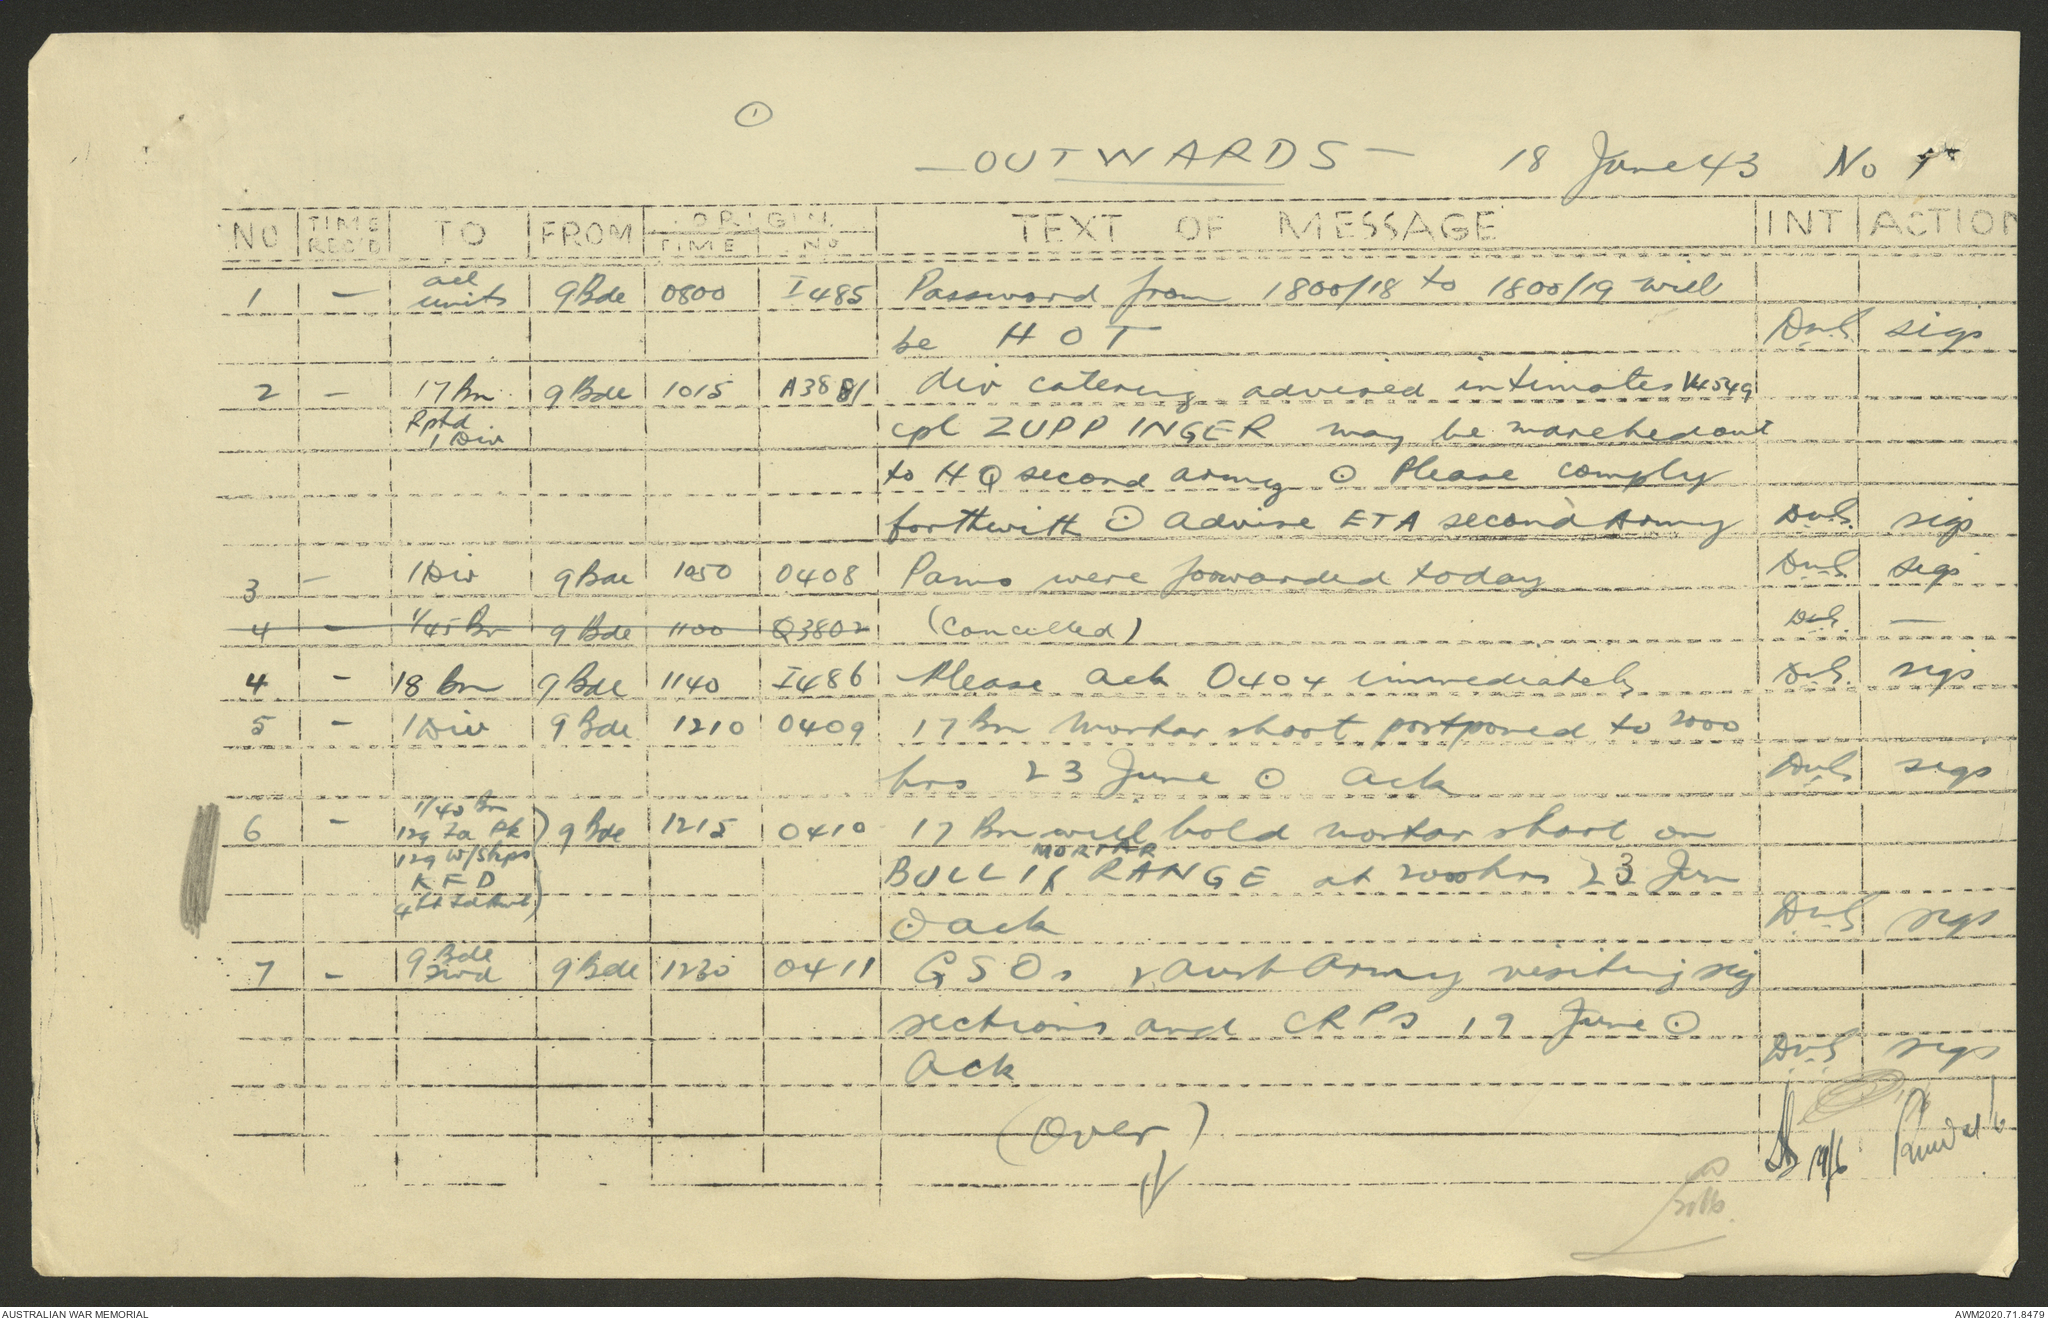 1
- OUTWARDS - 18 June 43 No 1
NO TIME REC'D TO FROM ORIGIN TIME NO TEXT OF MESSAGE INT ACTION
1 - all units 9 Bde 0800 I485 Password from 1800/18 to 1800/19 will
be HOT sigs
2 - 17 Bn 9 Bde 1015 A3881 div catering advised intimates V4549
Rptd 1 Div cpl ZUPPINGER may be marched out
to HQ second army ⊙ Please comply
forthwith ⊙ advise ETA second Army sigs
3 - 1 Div 9 Bde 1050 O408 Pams were forwarded today sigs
4 - 1/45 Bn 9 Bde 1100 Q3802 (Cancelled) -
4 - 18 Bn 9 Bde 1140 I486 Please ack O404 immediately sigs
5 - 1 Div 9 Bde 1210 O409 17 Bn Mortar shoot postponed to 2000
hrs 23 June ⊙ ack sigs
6 - 1/40 Bn 9 Bde 1215 O410 17 Bn will hold mortar shoot on
129 W/Shps MORTAR
K F D BULLI RANGE at 2000 hrs 23 Jun
⊙ ack sigs
7 - 9 Bde 9 Bde 1230 O411 GSOs 2 Aust Army visiting sig
sections and CRPS 19 June ⊙
Ack sigs
(Over)
19/6
AUSTRALIAN WAR MEMORIAL AWM2020.71.8479